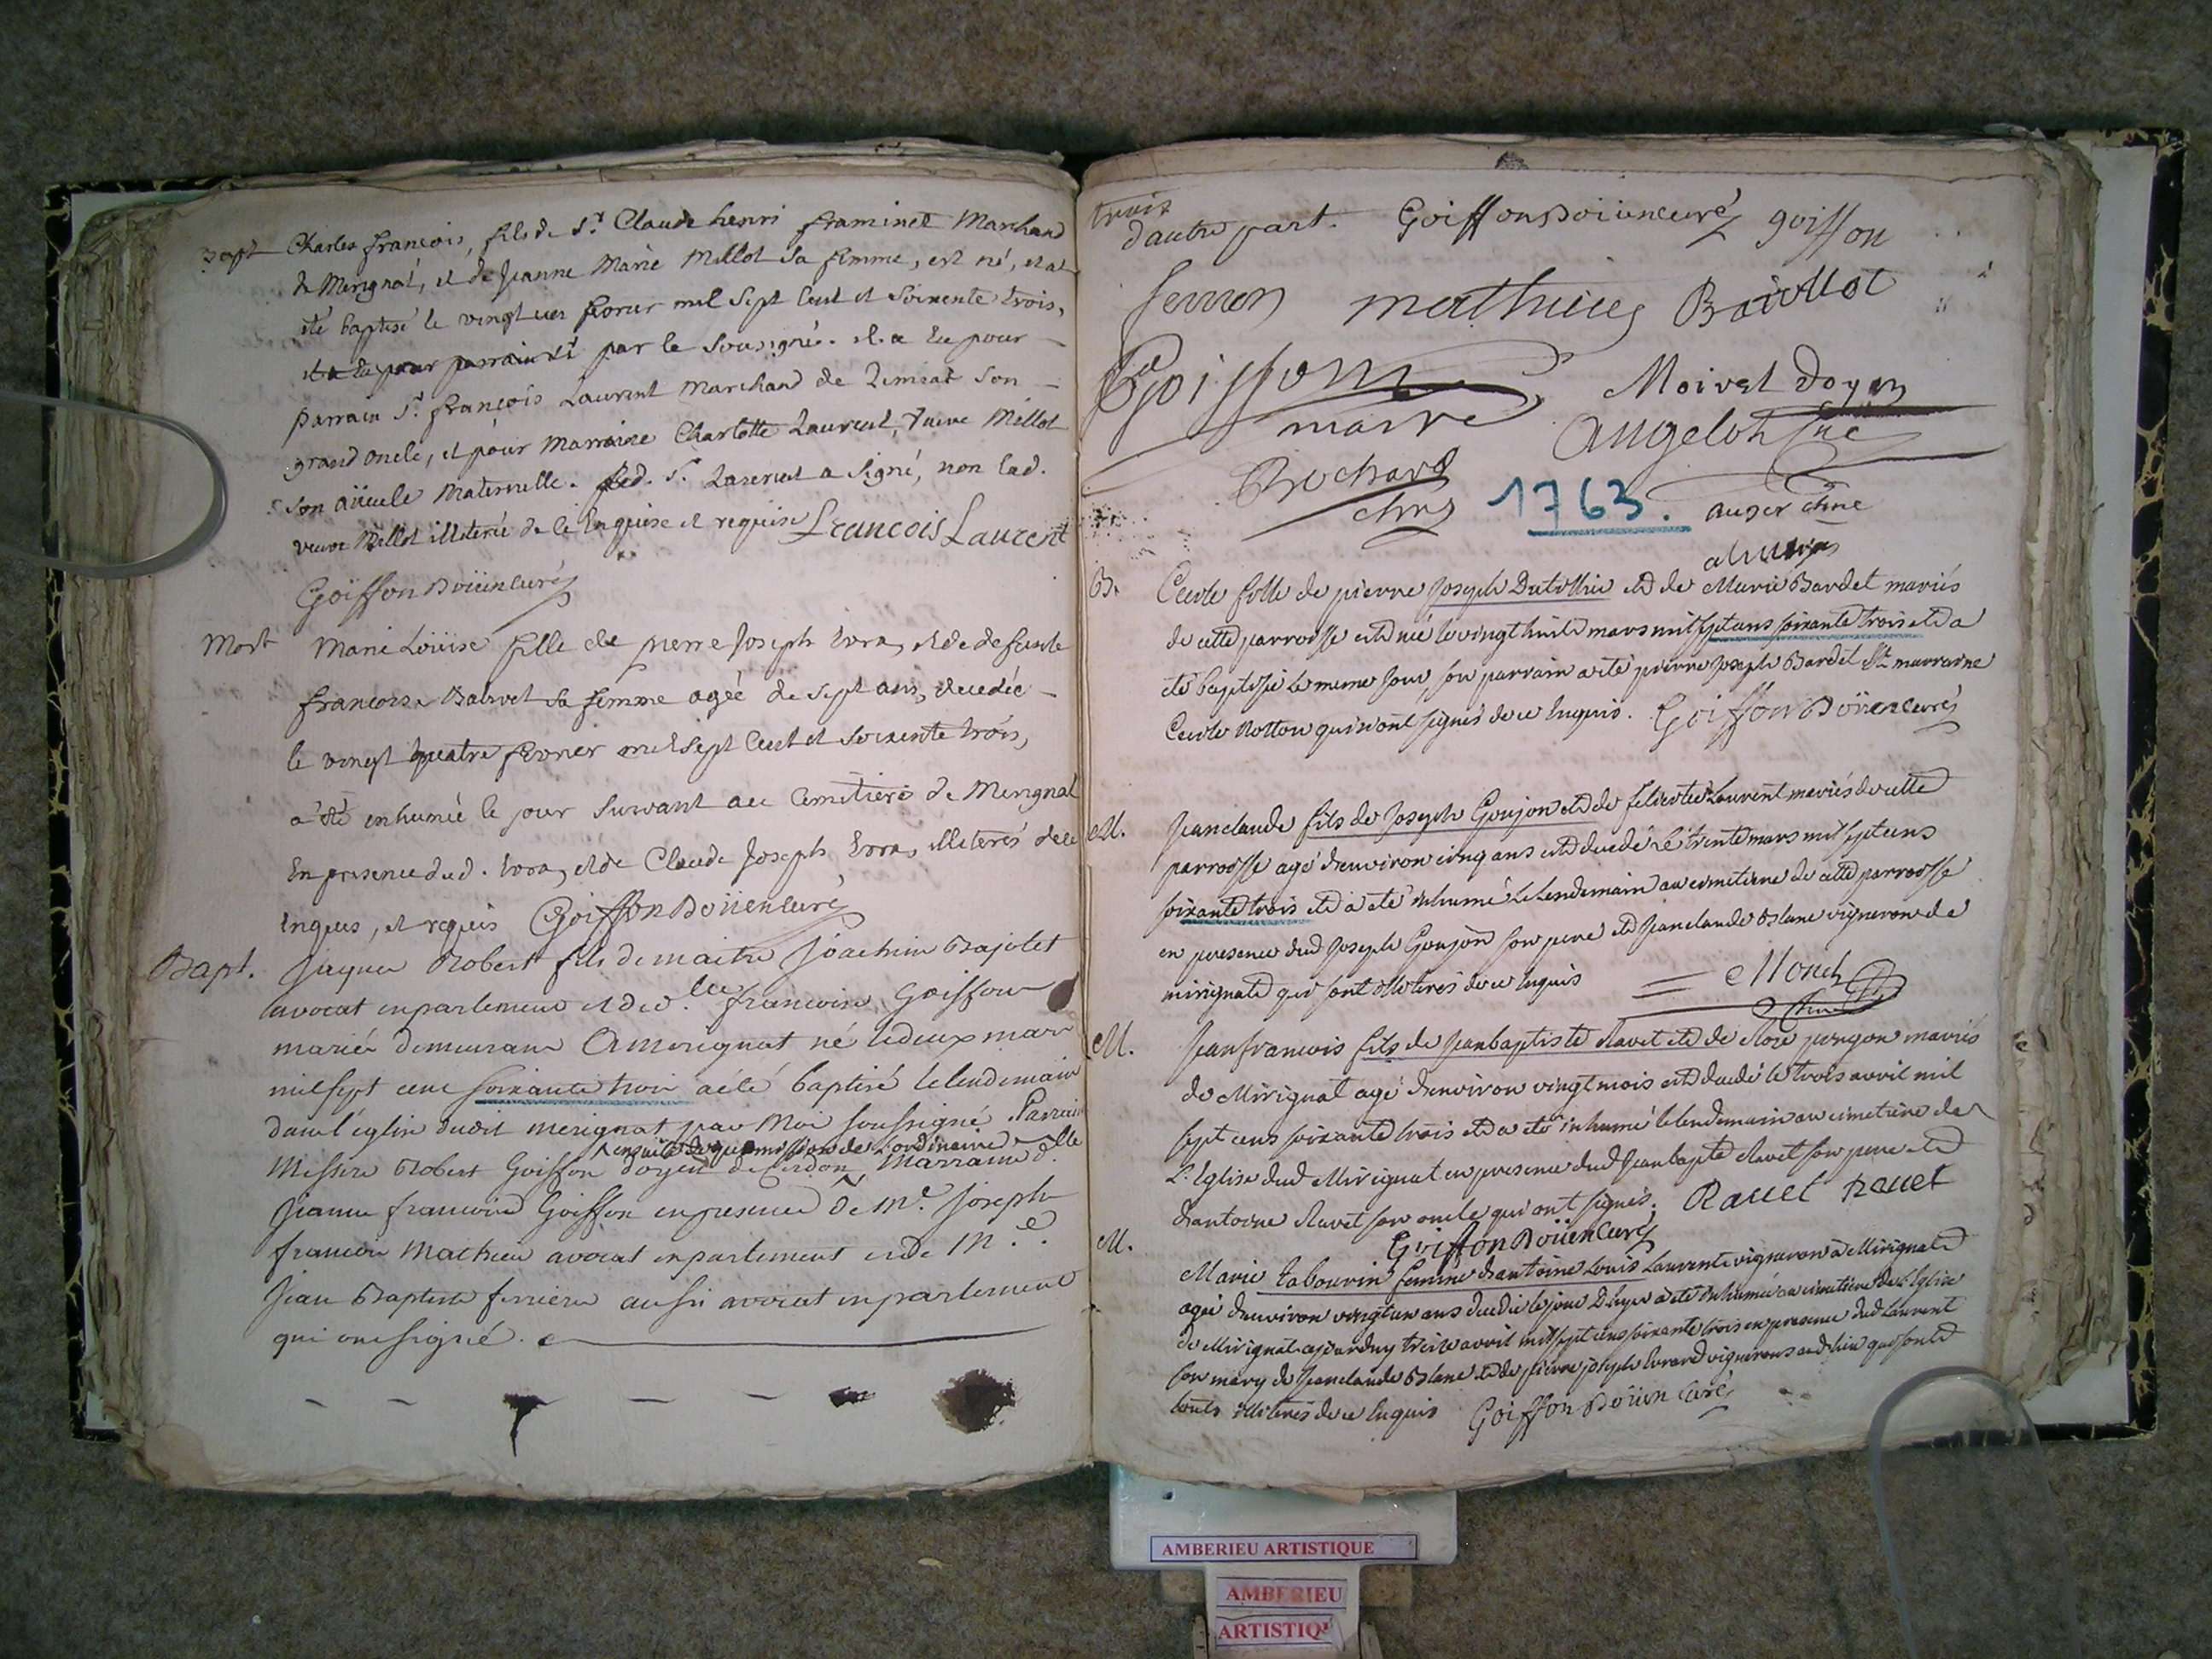 Bapt Charles françois, fils de Sr. Claude henri framinet Marchand
de Merignat, et de Jeanne Marie Millot sa femme, est né, et a
été baptisé le vingt un fevrier mil sept Cent et soixente trois,
et a eu pour parrain Sr par le sousigné. il a eu pour
parrain Sr. françois Laurent Marchand de son
grand oncle, et pour Marraine Charlotte Laurent, veuve Millot
son aÿeule Maternelle. led. Sr. Laurent a signé, non lad.
veuve Millot illiterée de ce Enquise et requise Francois Laurent
Goiffon Doüen Curé
Mort Marie Loüise fille de pierre Joseph Evra, et de defunte
francoise Balivet sa femme agée de sept ans, decedée
le vingt quatre fevrier mil sept Cent et soixente trois,
a été enhumée le jour suivant au Cemetiere de Merignat
En presence dud. Evra, et de Claude Joseph Evra, illeterés de ce
Enquis, et requis Goiffon Doüen Curé
Bapt. Jaques Robert fils de maitre Joachim Bajolet
avocat en parlement et de d.lle francoise Goiffon
mariés demeurant a merignat né le deux mars
mil sept cent soixante trois a été baptisé le lendemain
dans l'église dudit merignat par Moi soussigné. Parrain
ensuite de permission de L'ordinaire
Messire Robert Goiffon doyen de Cerdon, Marraine d.lle
Jeanne francoise Goiffon en presence de Me. Joseph
francois Mathieu avocat en parlement et de Me.
Jean Baptiste ferrieres aussi avocat en parlement
qui ont signé.
trois
d'autre part. Goiffon Doüen curé goiffon
mathieu Baillot
Goiffon Moirel doyen
marre Angeloth
Bochard 1763. auger
B. Cecile fille de pierre Joseph Dutillier et de Marie Bardet mariés
de cette parroisse est née le vingt huit mars mil sept cens soixante trois et a
été baptisée le meme jour, son parrain a été pierre Joseph Bardet Sa marraine
Cecile Notton qui n'ont signés de ce Enquis. Goiffon Doüen curé
M. Jean claude fils de Joseph Goujon et de felicité Laurent mariés de cette
parroisse agé d'environ cinq ans est decedé le trente mars mil sept cens
soixante trois et a été inhumé Le Lendemain au cimetiere de cette parroisse
en presence dud Joseph Goujon son pere et Jean claude Blanc vigneron de
mirignat qui sont illiterés de ce Enquis
M. Jean francois fils de Jean baptiste Ravet et de Rose pongon mariés
de Mirignat agé d'environ vingt mois est decedé le trois avril mil
sept cens soixante trois et a été inhumé le lendemain au cimetiere de
L'Eglise dud Mirignat en presence dud Jean bapte Ravet son pere et
d'antoine Ravet son oncle qui ont signés. Ravet Ravet
Goiffon Doüen Curé
M. Marie tabourin femme d'antoine Louis Laurent vigneron a Mirignat
agée d'environ vingt un ans decedée le jour D'hyer a été Inhumée au cimetiere de L'Eglise
de Mirignat aujourduy treize avril mil sept cens soixante trois en presence dud Laurent
son mary de Jean claude Blanc et de pierre joseph Evrard vignerons aud lieu qui sont
touts illiterés de ce Enquis Goiffon Doüen Curé
AMBERIEU ARTISTIQUE
AMBERIEU
ARTISTIQ